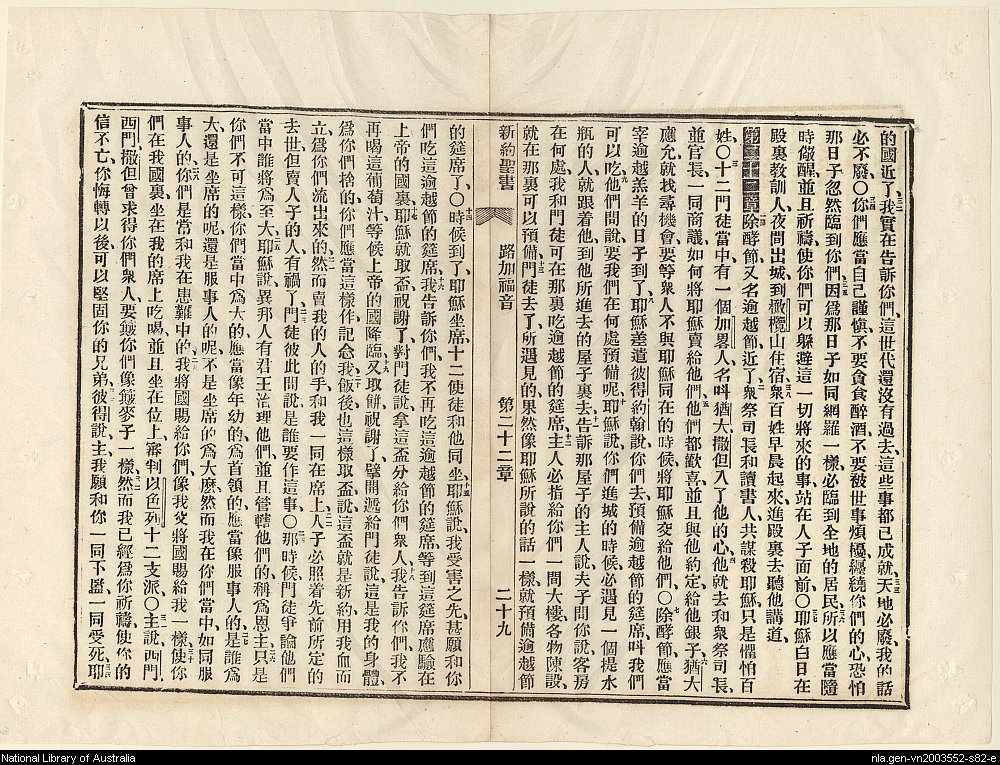 的國近了、我實在告訴你們、這世代還沒有過去、這些事都已成就、天地必廢、我的話
必不廢、〇你們應當自己謹慎、不要貪食醉酒、不要被世事煩擾纏繞你們的心、恐怕
那日子忽然臨到你們、因爲那日子如同網羅一樣、必臨到全地的居民、所以應當隨
時儆醒、並且祈禱、使你們可以躲避這一切將來的事、站在人子面前、〇耶穌白日在
殿裏教訓人、夜間出城、到橄欖山住宿、衆百姓早晨起來、進殿裏去聽他講道、
第二十二章除酵節又名逾越節近了、衆祭司長和讀書人、共謀殺耶穌、只是懼怕百
姓、〇十二門徒當中、有一個加畧人、名叫猶大、撒但入了他的心、他就去和衆祭司長、
並官長、一同商議、如何將耶穌賣給他們、他們都歡喜、並且與他約定、給他銀子、猶大
應允、就找尋機會、要等衆人不與耶穌同在的時候、將耶穌交給他們、〇除酵節、應當
宰逾越羔羊的日子到了、耶穌差遣彼得約翰說、你們去預備逾越節的筵席、呌我們
可以吃、他們問說、要我們在何處預備呢、耶穌說、你們進城的時候、必遇見一個提水
瓶的人、就跟着他、到他所進去的屋子裏去、告訴那屋子的主人說、夫子問你說、客房
在何處、我和門徒可在那裏吃逾越節的筵席、主人必指給你們一間大樓、各物陳設、
就在那裏可以預備、門徒去了、所遇見的、果然像耶穌所說的話一樣、就預備逾越節
新約聖書 路加福音 第二十二章 二十九
的筵席了、〇時候到了、耶穌坐席、十二使徒和他同坐、耶穌說、我受害之先、甚願和你
們吃這逾越節的筵席、我告訴你們、我不再吃這逾越節的筵席、等到這筵席應驗在
上帝的國裏、耶穌就取盃祝謝了、對門徒說、拿這盃分給你們衆人、我告訴你們、我不
再喝這葡萄汁、等候上帝的國降臨、又取餅祝謝了、擘開遞給門徒說、這是我的身體、
爲你們捨的、你們應當這樣作記念我、飯後也這樣取盃說、這盃就是新約、用我血而
立、爲你們流出來的、然而賣我的人的手、和我一同在席上、人子必照着先前所定的
去世、但賣人子的人、有禍了、門徒彼此問說、是誰要作這事、〇那時候門徒爭論他們
當中誰將爲至大、耶穌說、異邦人有君王治理他們、並且管轄他們的、稱爲恩主、只是
你們不可這樣、你們當中爲大的、應當像年幼的、爲首領的、應當像服事人的、是誰爲
大、還是坐席的呢、還是服事人的呢、不是坐席的爲大麽、然而我在你們當中、如同服
事人的、你們是常和我在患難中的、我將國賜給你們、像我父將國賜給我一樣、使你
們在我國裏、坐在我的席上吃喝、並且坐在位上、審判以色列十二支派、〇主說、西門、
西門、撒但曾求得你們衆人、要簸你們、像簸麥子一樣、然而我已經爲你祈禱、使你的
信不亡、你悔轉以後、可以堅固你的兄弟、彼得說、主、我願和你一同下監、一同受死、耶
National Library of Australia
nla.gen-vn2003552-s82-e